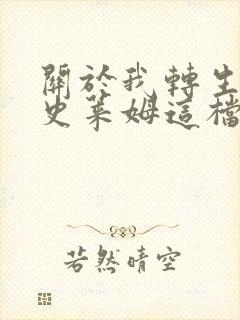 關於我轉生
史萊姆這檔
若然晴空